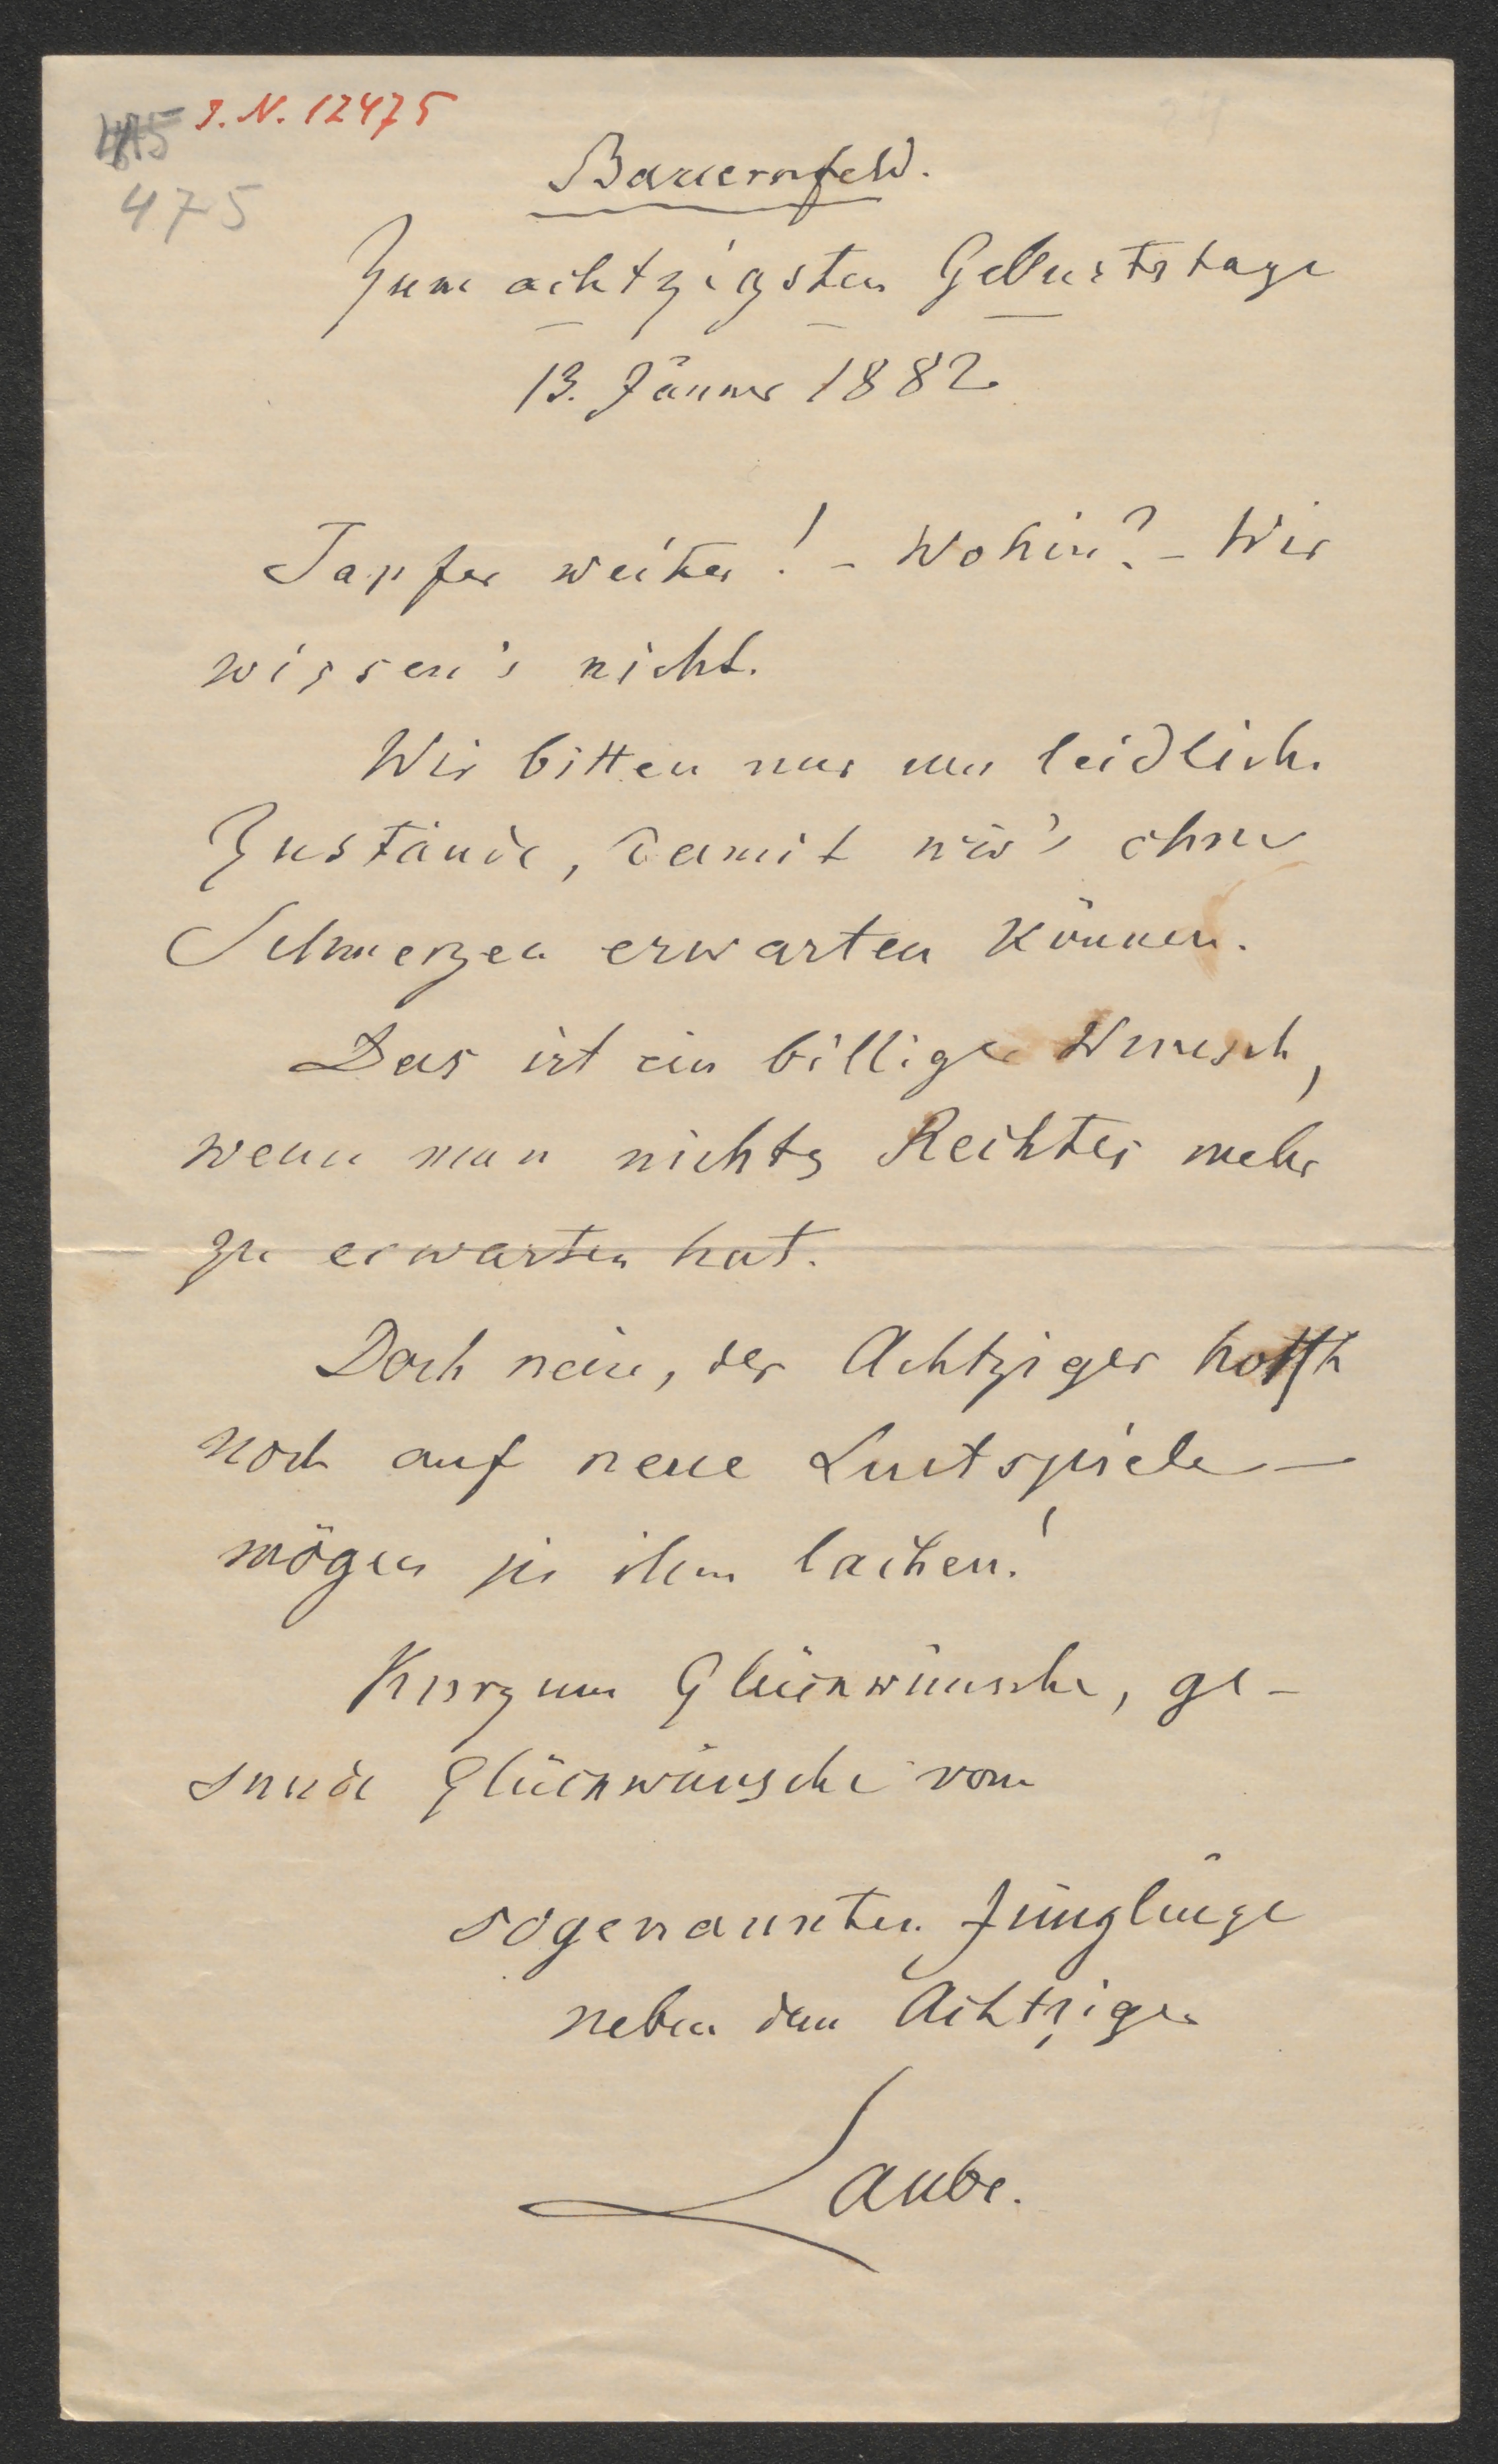 I. N. 12475
475
Bauernfeld.
Zum achtzigsten Geburtstage
13. Jänner 1882
Tapfer weiter! – Wohin? – Wir
wissen's nicht.
Wir bitten nur um leidliche
Zustände, damit wir's ohne
Schmerzen erwarten können.
Das ist ein billiger Wunsch,
wenn man nichts Rechtes mehr
zu erwarten hat.
Doch nein, der Achtziger hofft
noch auf neue Lustspiele –
mögen sie ihm lachen!
Kurzum Glückwünsche, ge-
sunde Glückwünsche vom
sogenannten Jünglinge
neben dem Achtziger
Laube.